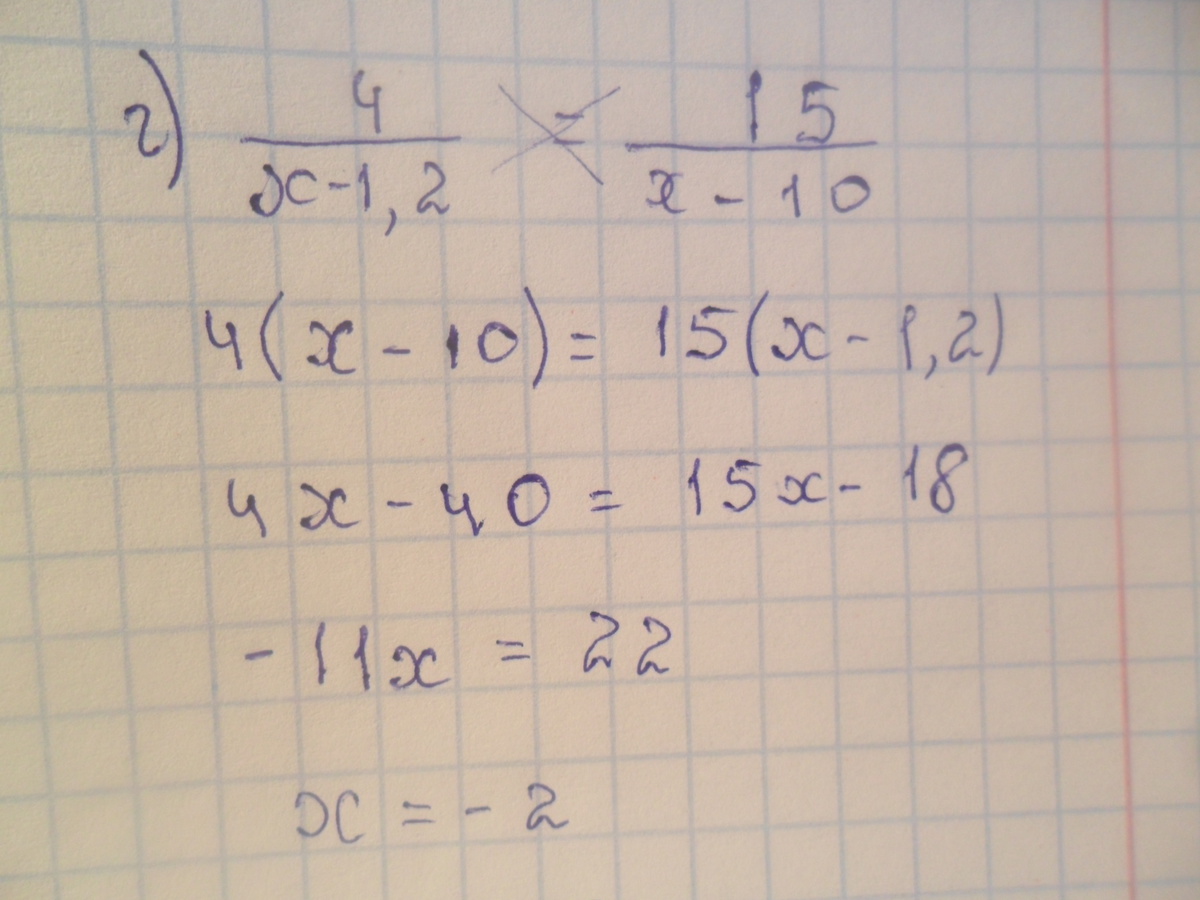 г) 4/(x-1,2) = 15/(x-10)
4(x-10)=15(x-1,2)
4x-40=15x-18
-11x=22
x=-2